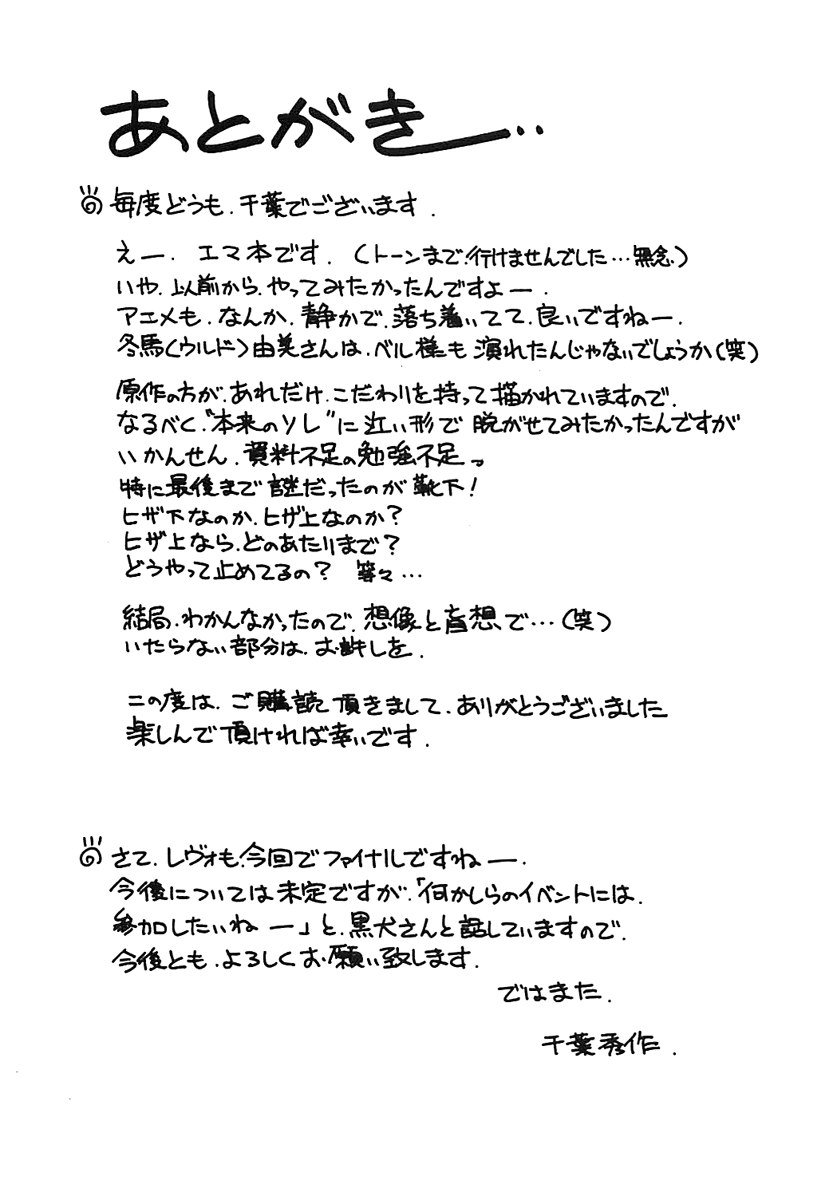 あとがき‥
毎度どうも、千葉でございます.
えー. エマ本です. (トーンまで行けませんでした…無念)
いや、以前から、やってみたかったんですよー.
アニメも、なんか、静かで、落ち着いてて、良いですねー.
冬馬(ウルド)由美さんは、ベル様も演れたんじゃないでしょうか(笑)
原作の方が、あれだけ、こだわりを持って描かれていますので、
なるべく、“本来のソレ”に近い形で脱がせてみたかったんですが
いかんせん、資料不足の勉強不足っ
特に最後まで謎だったのが靴下!
ヒザ下なのか、ヒザ上なのか?
ヒザ上なら、どのあたりまで?
どうやって止めてるの? 等々…
結局、わかんなかったので、想像と盲想で…(笑)
いたらない部分は、お許しを.
この度は、ご購読頂きまして、ありがとうございました
楽しんで頂ければ幸いです.
さて、レヴォも、今回でファイナルですねー.
今後については未定ですが、「何かしらのイベントには、
参加したいねー」と、黒犬さんと話していますので、
今後とも、よろしくお願い致します.
ではまた.
千葉秀作.